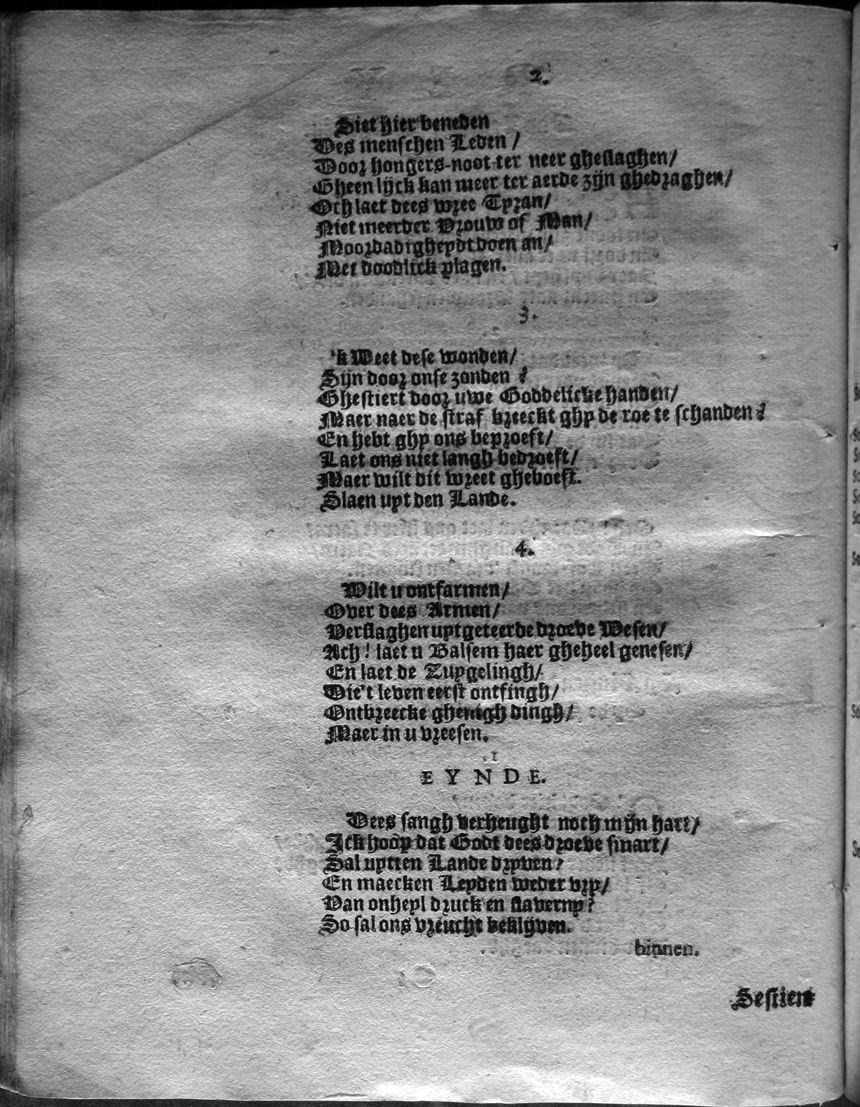 2.
Siet hier beneden
Des menschen Leden /
Door hongers-noot ter neer gheslaghen/
Gheen lijck kan meer ter aerde zijn ghedraghen/
Och laet dees wree Tyran/
Niet meerder Vrouw of Man/
Moordadigheydt doen an/
Met doodlick plagen.
3.
'k Weet dese wonden/
Sijn door onse zonden ?
Ghestiert door uwe Goddelicke handen/
Maer naer de straf breeckt ghy de roe te schanden?
En hebt ghy ons beproeft/
Laet ons niet langh bedroeft/
Maer wilt dit wreet gheboeft.
Slaen uyt den Lande.
4.
Wilt u ontfarmen/
Over dees Armen/
Verslaghen uytgeteerde droeve Wesen/
Ach! laet u Balsem haer gheheel genesen/
En laet de Zuygelingh/
Die't leven eerst ontfingh/
Ontbreecke ghenigh dingh/
Maer in u vreesen.
EYNDE.
Dees sangh verheught noch mijn hart/
Ick hoop dat Godt dees droeve smart/
Sal uytten Lande dryven?
En maecken Leyden weder vry/
Van onheyl druck en slaverny?
So sal ons vreucht beklijven.
binnen.
Sestien